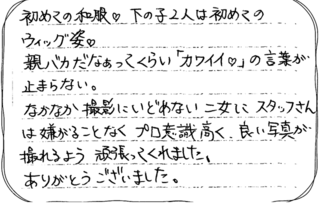 初めての和服♡ 下の子2人は初めての
ウィッグ姿♡
親バカだなぁってくらい「カワイイ♡」の言葉が
止まらない。
なかなか撮影にいどめない二女に スタッフさん
は嫌がることなく プロ意識高く、良い写真が
撮れるよう 頑張ってくれました。
ありがとうございました。